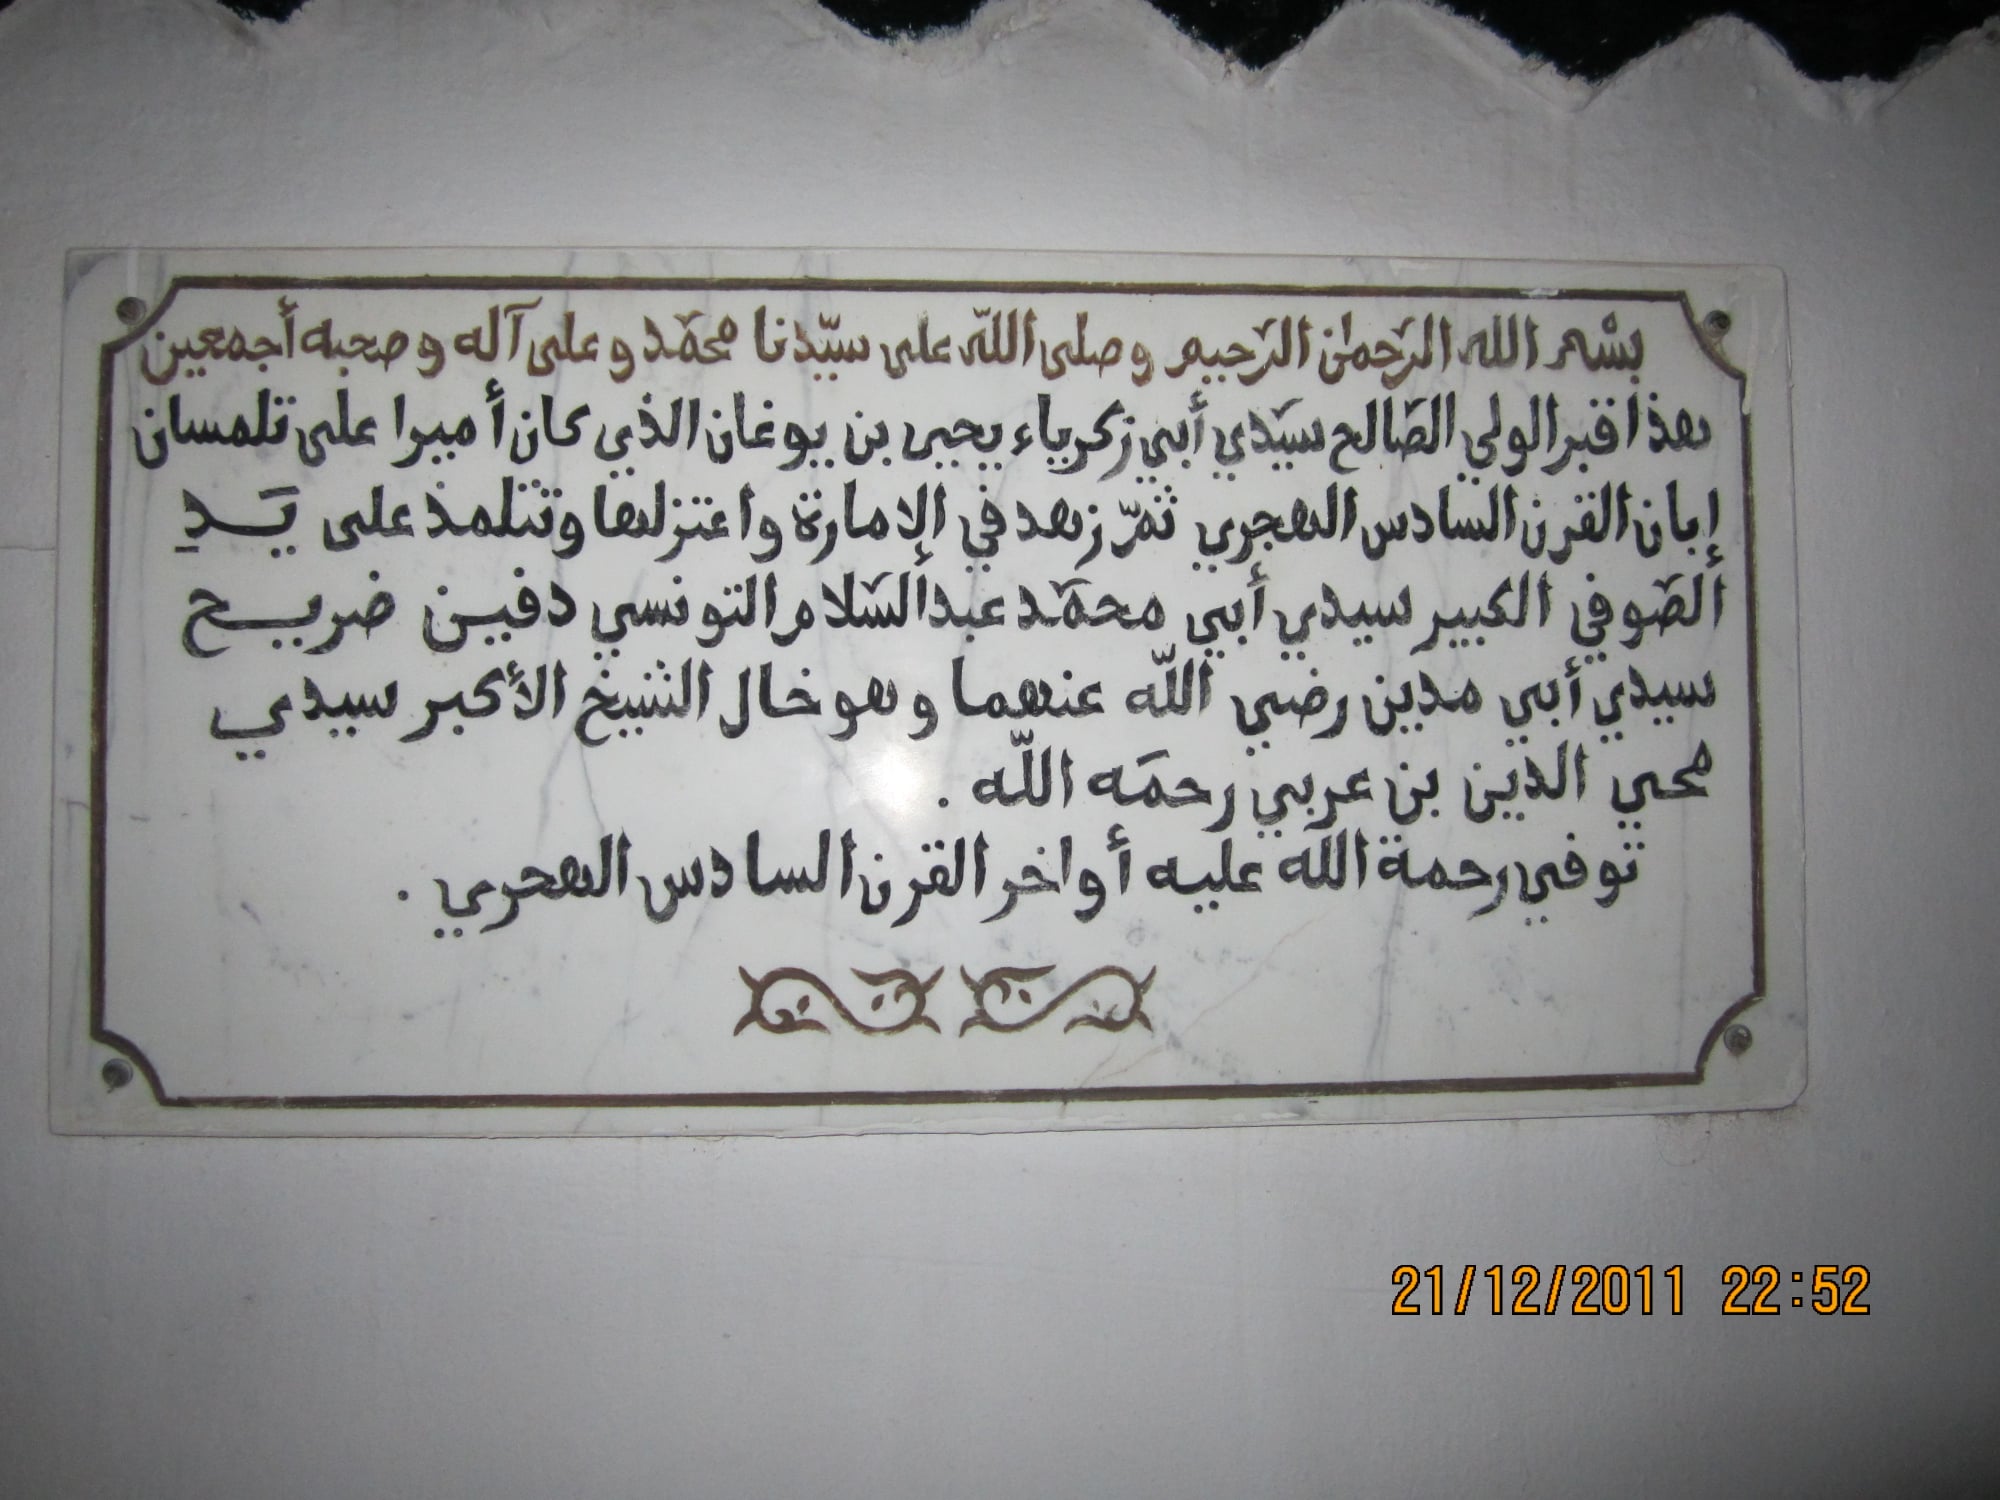 بسْم الله الرَحمٰن الرَحيم وصلى اللّه على سيّدنا محمَد وعلى آله وصحبه أجمعين
هذا قبر الولي الصَالح سيَدي أبي زكرياء يحيى بن يوغان الذي كان أميرا على تلمسان
إبان القرن السادس الهجري ثمّ زهد في الإمارة واعتزلها وتتلمذ على يَــدِ
ألصَوفي الكبير سيدي أبي محمَد عبد السَلام التونسي دفيـن ضريــح
سيدي أبي مدين رضي اللّه عنهما وهو خال الشيخ الأكبر سيدي
محي الدين بن عربي رحمَه اللّه .
توفي رحمة الله عليه أواخر القرن السادس الهجري .
21/12/2011 22:52